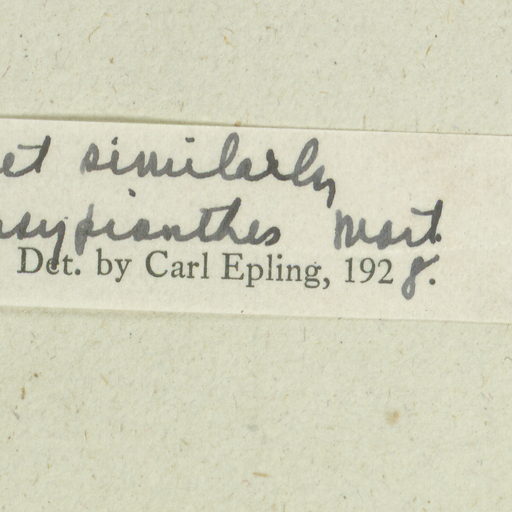 et similarly
asypianthes Mart.
Det. by Carl Epling, 1928.